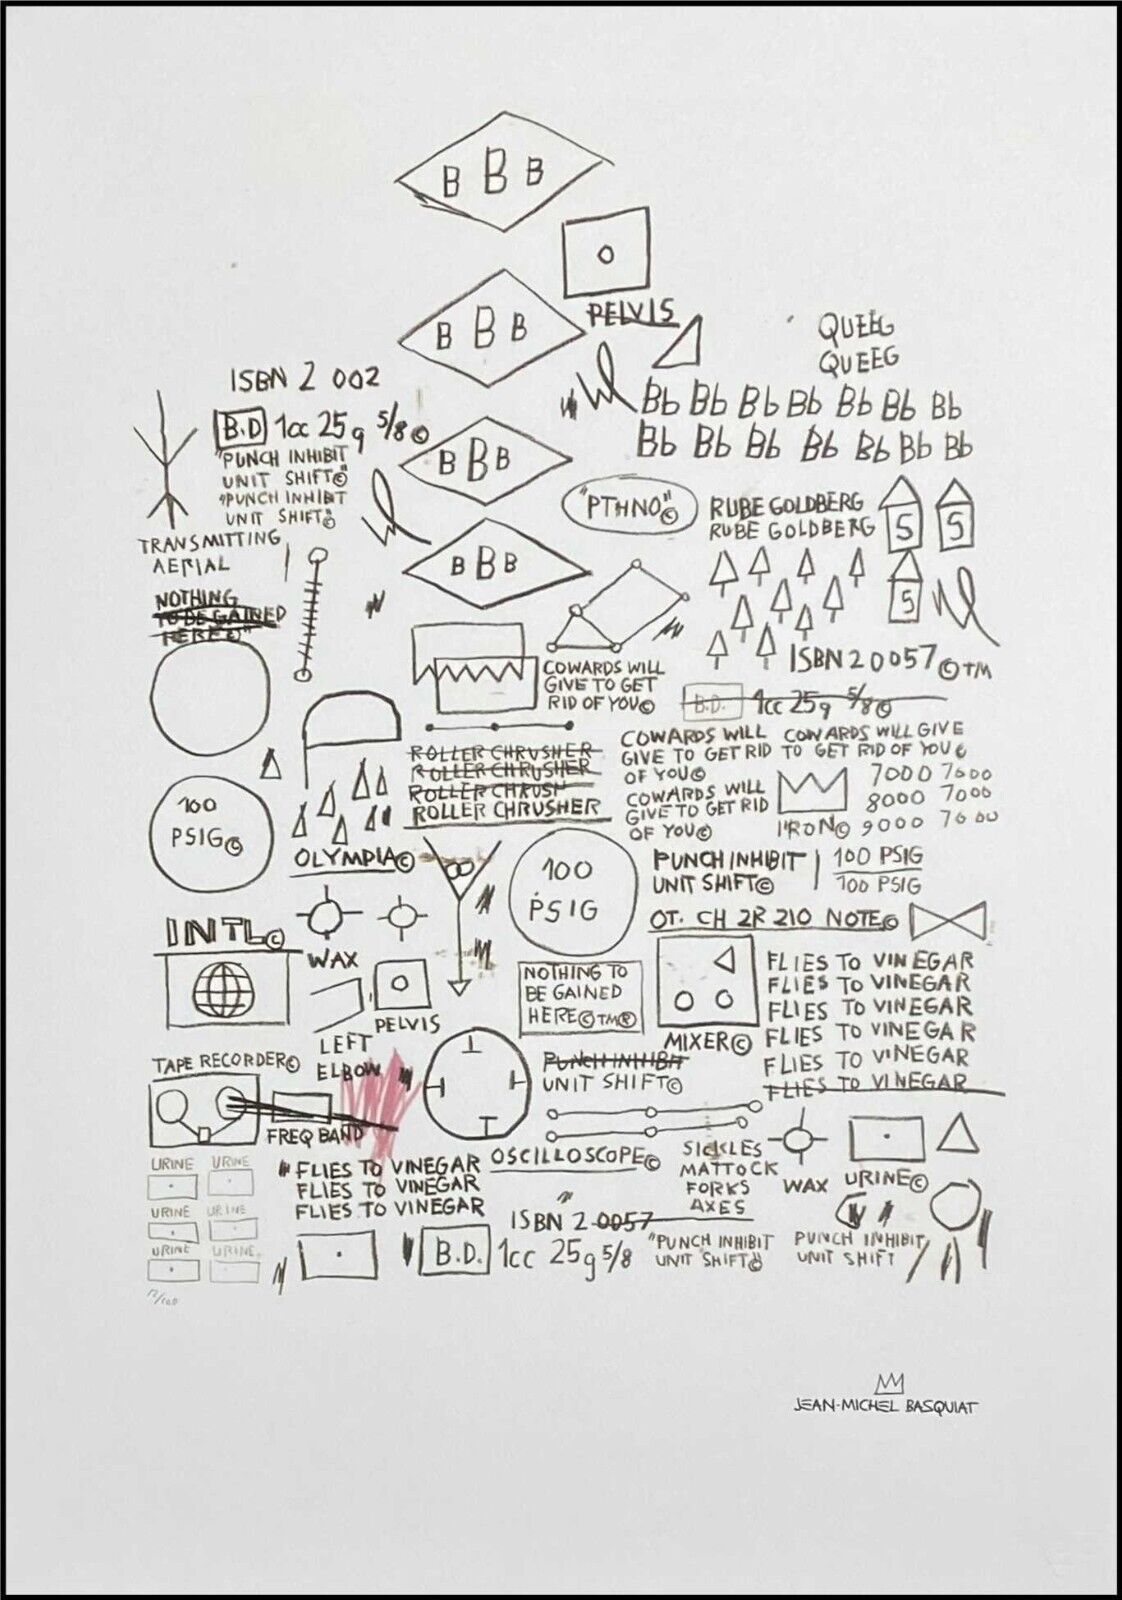 B B B
PELVIS
B B B
QUEEG
QUEEG
ISBN 2 002
Bb Bb Bb Bb Bb Bb Bb
B.D 1cc 25g 5/8 ©
Bb Bb Bb Bb Bb Bb Bb
"PUNCH INHIBIT
UNIT SHIFT©"
B B B
"PUNCH INHIBIT
UNIT SHIFT"©
"PTHNO"©
RUBE GOLDBERG
RUBE GOLDBERG
S
S
TRANSMITTING
AERIAL
B B B
NOTHING
TO BE GAINED
HERE©"
S
ISBN 2 0057 © TM
COWARDS WILL
GIVE TO GET
RID OF YOU©
B.D. 1cc 25g 5/8©
ROLLER CHRUSHER
ROLLER CHRUSHER
ROLLER CHRUSH
ROLLER CHRUSHER
COWARDS WILL
GIVE TO GET RID
OF YOU©
COWARDS WILL GIVE
TO GET RID OF YOU©
COWARDS WILL
GIVE TO GET RID
OF YOU©
7000 7000
8000 7000
IRON© 9000 7000
100
PSIG©
OLYMPIA©
100
PSIG
PUNCH INHIBIT
UNIT SHIFT©
100 PSIG
100 PSIG
OT. CH 2R 210 NOTE©
INTL©
WAX
PELVIS
LEFT
ELBOW
NOTHING TO
BE GAINED
HERE©TM®
MIXER©
FLIES TO VINEGAR
FLIES TO VINEGAR
FLIES TO VINEGAR
FLIES TO VINEGAR
FLIES TO VINEGAR
FLIES TO VINEGAR
TAPE RECORDER©
PUNCH INHIBIT
UNIT SHIFT©
FREQ BAND
OSCILLOSCOPE©
SICKLES
MATTOCK
FORKS
AXES
WAX
URINE©
URINE URINE
URINE URINE
URINE URINE.
FLIES TO VINEGAR
FLIES TO VINEGAR
FLIES TO VINEGAR
ISBN 2 0057
B.D. 1cc 25g 5/8
"PUNCH INHIBIT
UNIT SHIFT"©
PUNCH INHIBIT
UNIT SHIFT
12/100
JEAN-MICHEL BASQUIAT